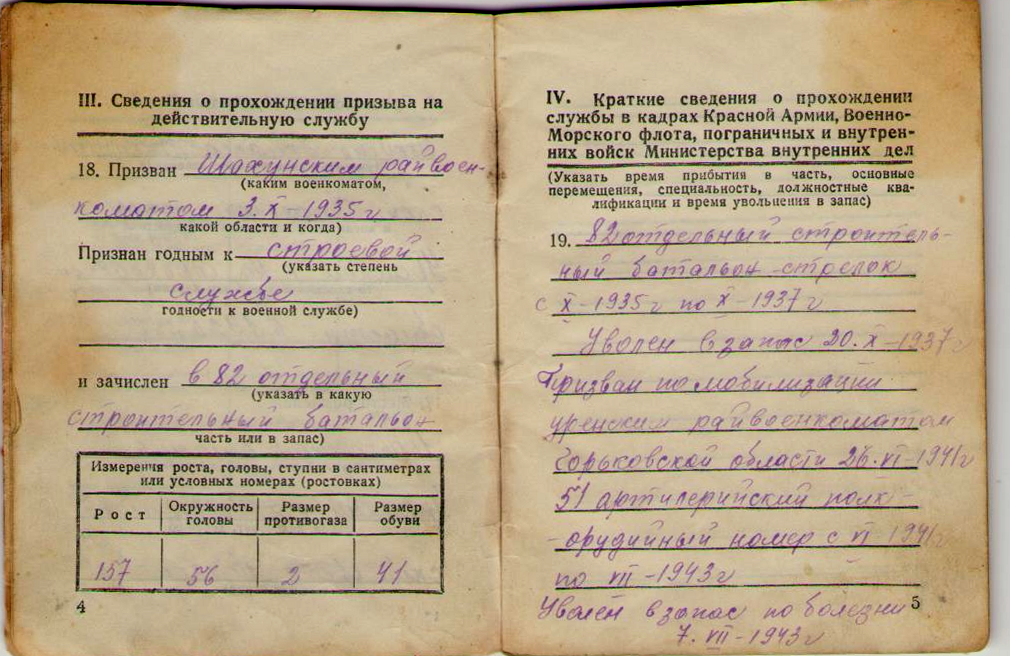 III. Сведения о прохождении призыва на
действительную службу
18. Призван Шахунским райвоен-
(каким военкоматом,
коматом 3. X – 1935 г
какой области и когда)
Признан годным к строевой
(указать степень
службе
годности к военной службе)
и зачислен в 82 отдельный
(указать в какую
строительный батальон
часть или в запас)
Измерения роста, головы, ступни в сантиметрах
или условных номерах (ростовках)
Рост Окружность головы Размер противогаза Размер обуви
157 56 2 41
4
IV. Краткие сведения о прохождении
службы в кадрах Красной Армии, Военно-
Морского флота, пограничных и внутрен-
них войск Министерства внутренних дел
(Указать время прибытия в часть, основные
перемещения, специальность, должностные ква-
лификации и время увольнения в запас)
19. 82 отдельный строитель-
ный батальон – стрелок
с X – 1935 г по X – 1937 г
Уволен в запас 20. X – 1937 г
Призван по мобилизации
уренским райвоенкоматом
Горьковской области 26. VI – 1941 г
51 артилерийский полк –
– орудийный номер с VI 1941 г
по VII – 1943 г
Уволен в запас по болезни
7. VII – 1943 г
5